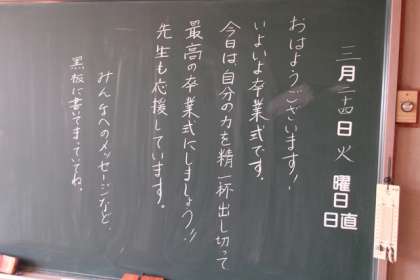 三月二十四日火曜日
日直
おはようございます!
いよいよ卒業式です。
今日は、自分の力を精一杯出し切って
最高の卒業式にしましょう!!
先生も応援しています。
みんなへのメッセージなど、
黒板に書いてまっていてね。